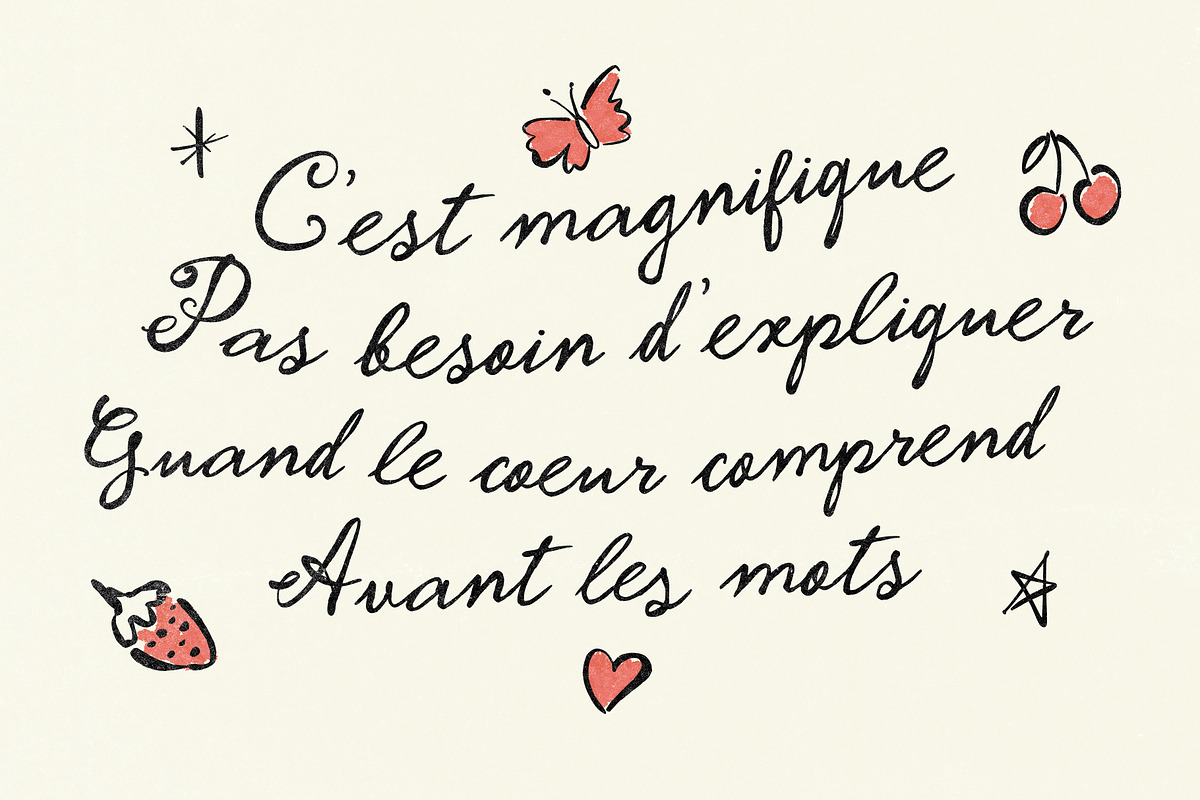 C'est magnifique
Pas besoin d'expliquer
Quand le coeur comprend
Avant les mots